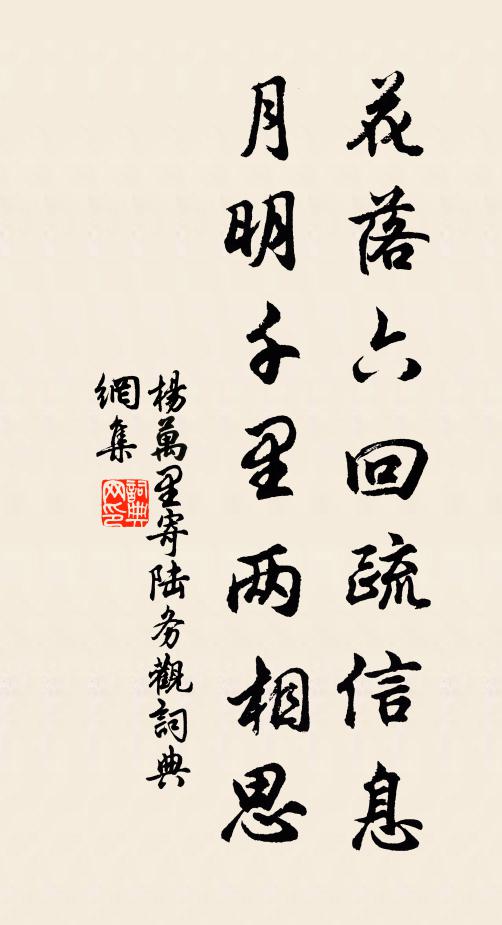 花落六回疏信息
月明千里两相思
楊萬里寄陆务觀詞典
網集
詞典
网印